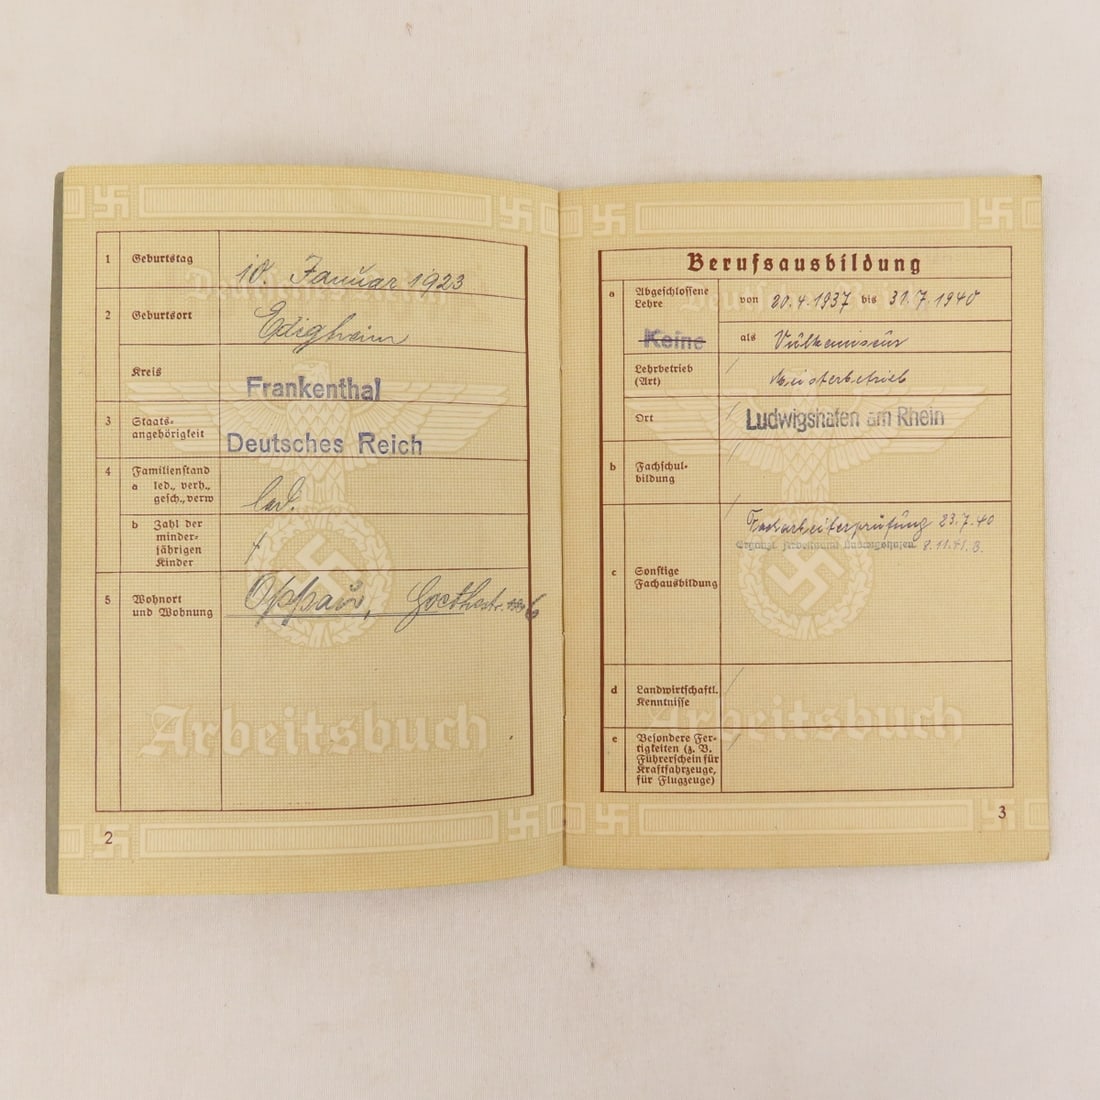 1 Geburtstag 10. Januar 1923
2 Geburtsort Edigheim
Kreis Frankenthal
3 Staats-
angehörigkeit Deutsches Reich
4 Familienstand
a led., verh.,
gesch., verw led.
b Zahl der
minder-
jährigen
Kinder
5 Wohnort
und Wohnung Oppau, Goethestr.
Arbeitsbuch
2
Berufsausbildung
a Abgeschlossene
Lehre von 20.4.1937 bis 31.7.1940
Keine als Vulkaniseur
Lehrbetrieb
(Art) Meisterbetrieb
Ort Ludwigshafen am Rhein
b Fachschul-
bildung
Facharbeiterprüfung 23.7.40
Ergänzt. Arbeitsamt Ludwigshafen 8.11.41.
c Sonstige
Fachausbildung
d Landwirtschaftl.
Kenntnisse
Arbeitsbuch
e Besondere Fer-
tigkeiten (z. B.
Führerschein für
Kraftfahrzeuge,
für Flugzeuge)
3